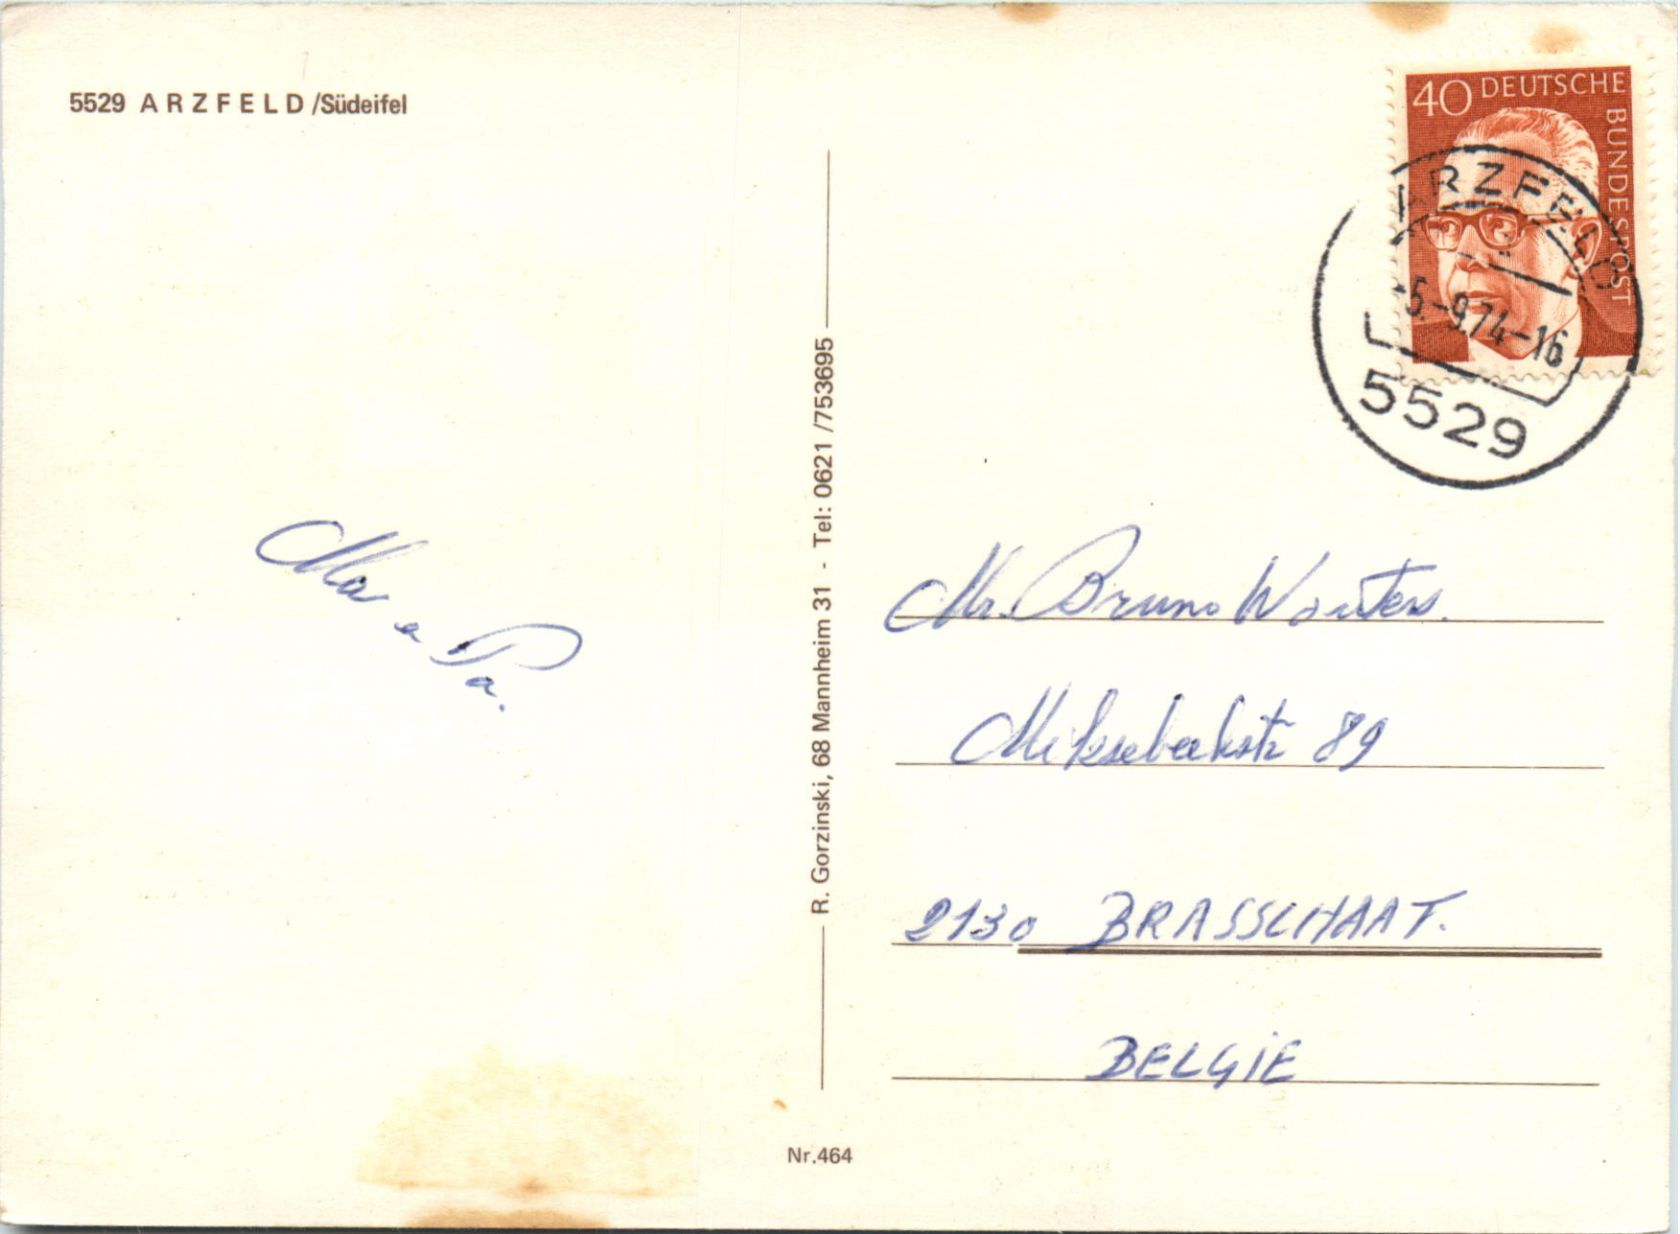 5529 ARZFELD/Südeifel
40 DEUTSCHE
BUNDESPOST
ARZFELD
5.-9.74-16
5529
Ma e Pa.
R. Gorzinski, 68 Mannheim 31 - Tel: 0621/753695
Mr. Bruno Wouters.
Miksebeekstr 89
2130 BRASSCHAAT.
BELGIE
Nr.464